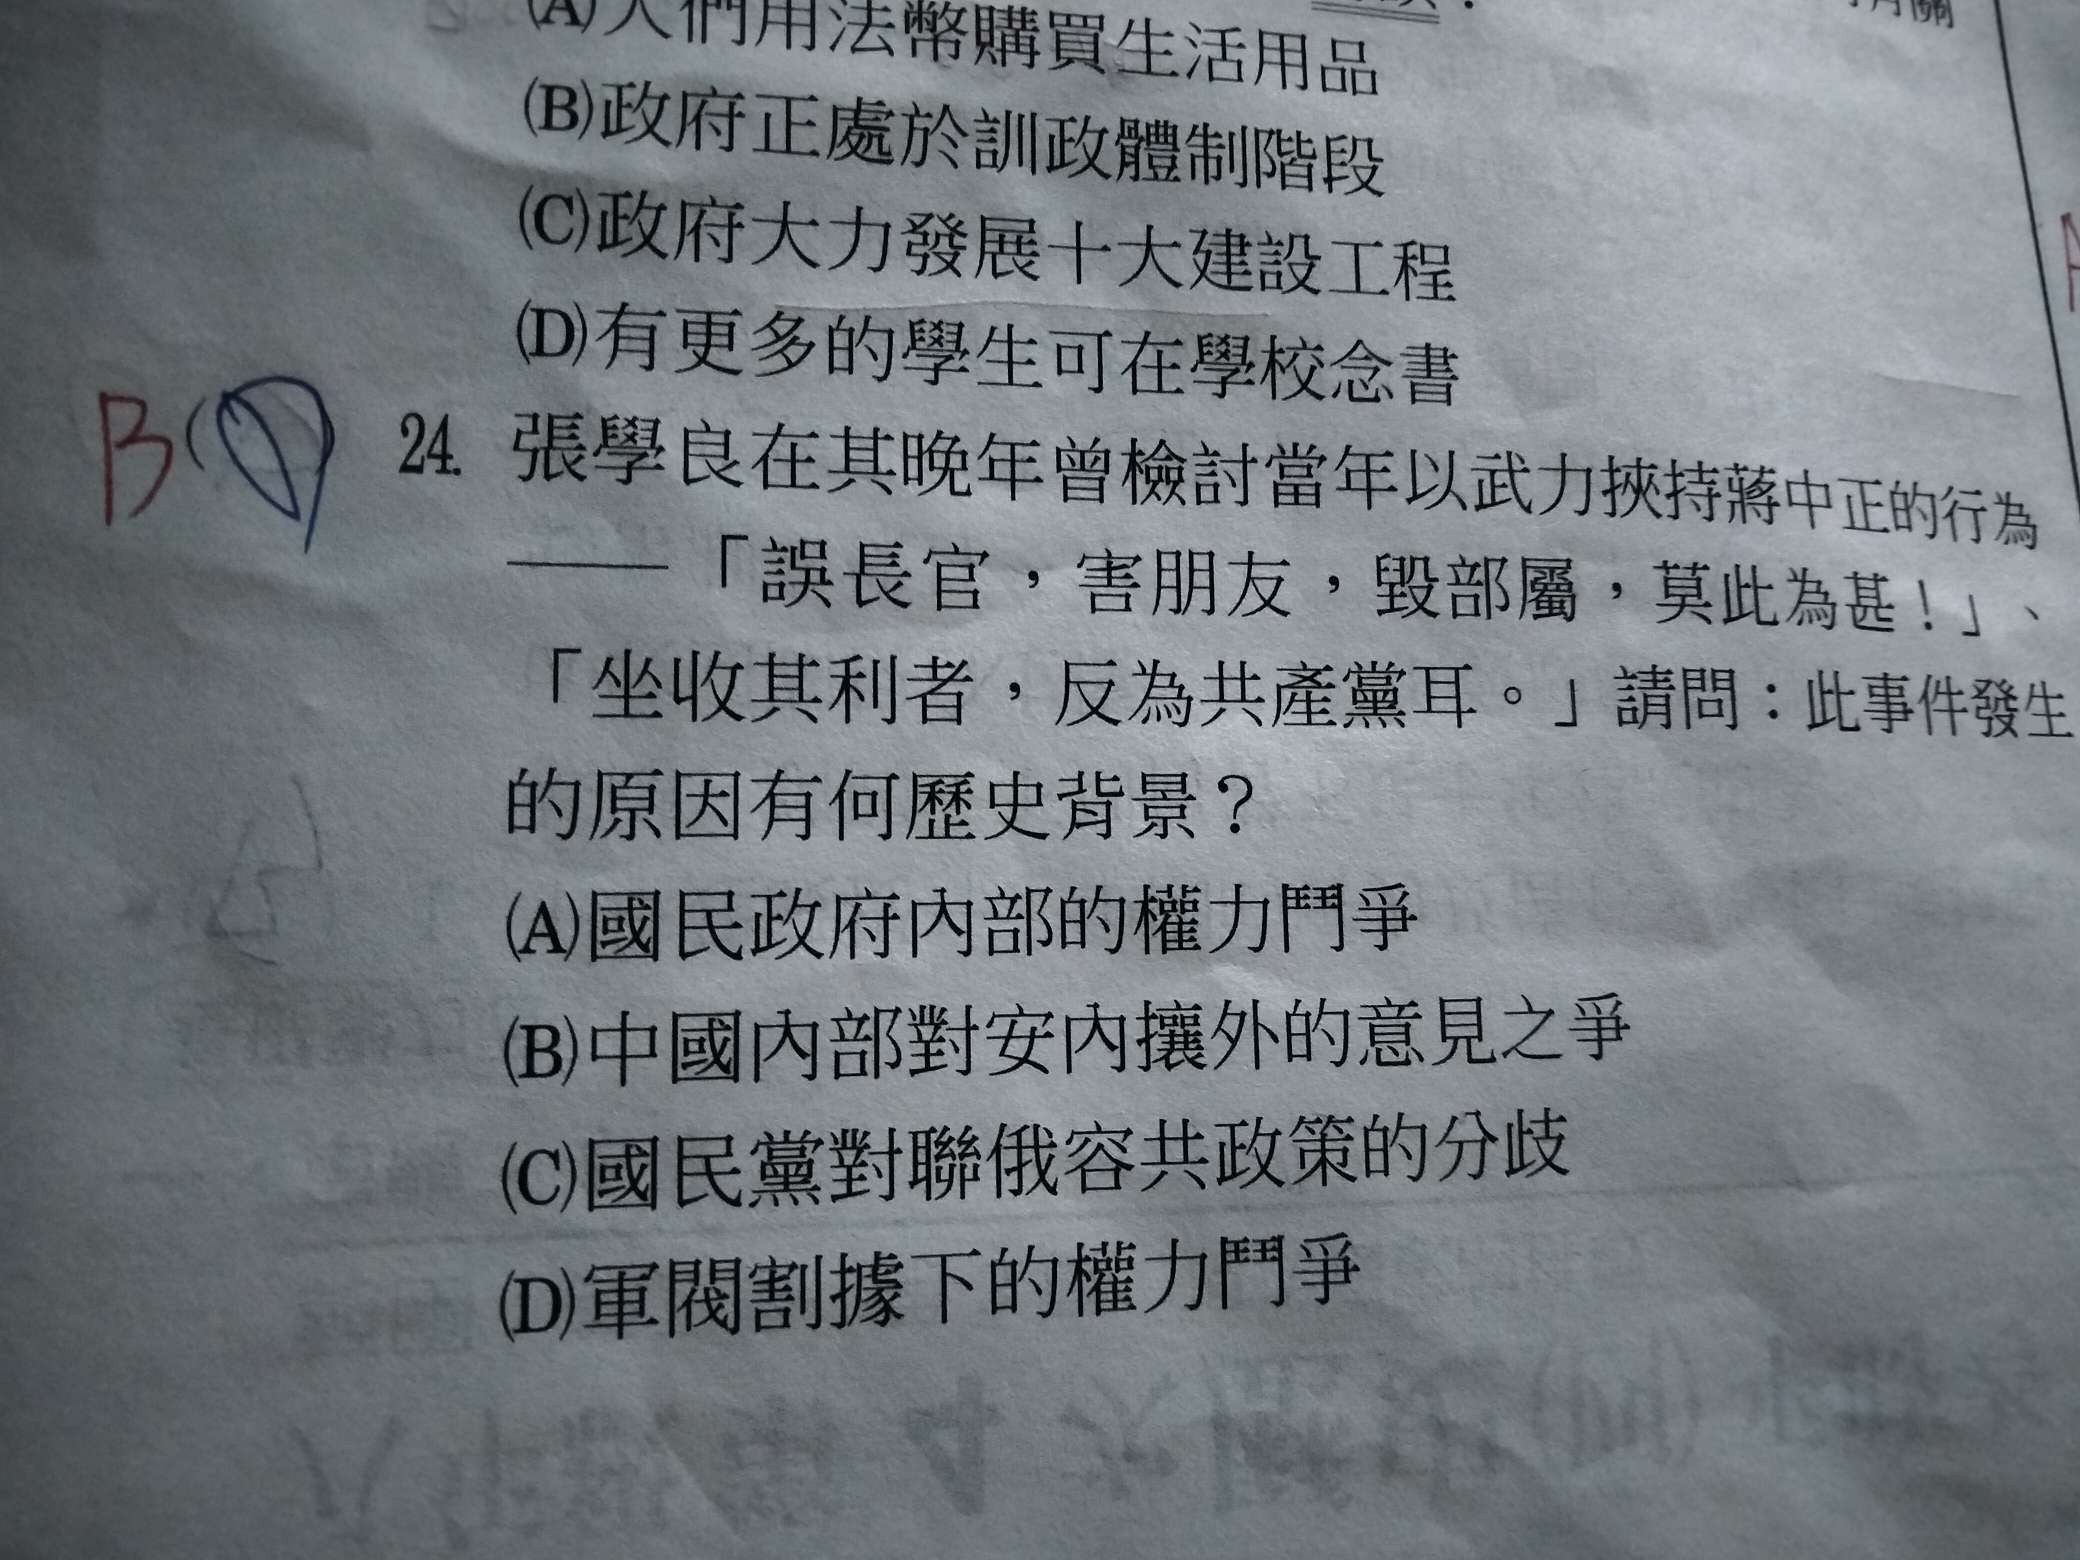 (A)人們用法幣購買生活用品
(B)政府正處於訓政體制階段
(C)政府大力發展十大建設工程
(D)有更多的學生可在學校念書
B(
24. 張學良在其晚年曾檢討當年以武力挾持蔣中正的行為
——「誤長官，害朋友，毀部屬，莫此為甚！」、
「坐收其利者，反為共產黨耳。」請問：此事件發生
的原因有何歷史背景？
(A)國民政府內部的權力鬥爭
(B)中國內部對安內攘外的意見之爭
(C)國民黨對聯俄容共政策的分歧
(D)軍閥割據下的權力鬥爭